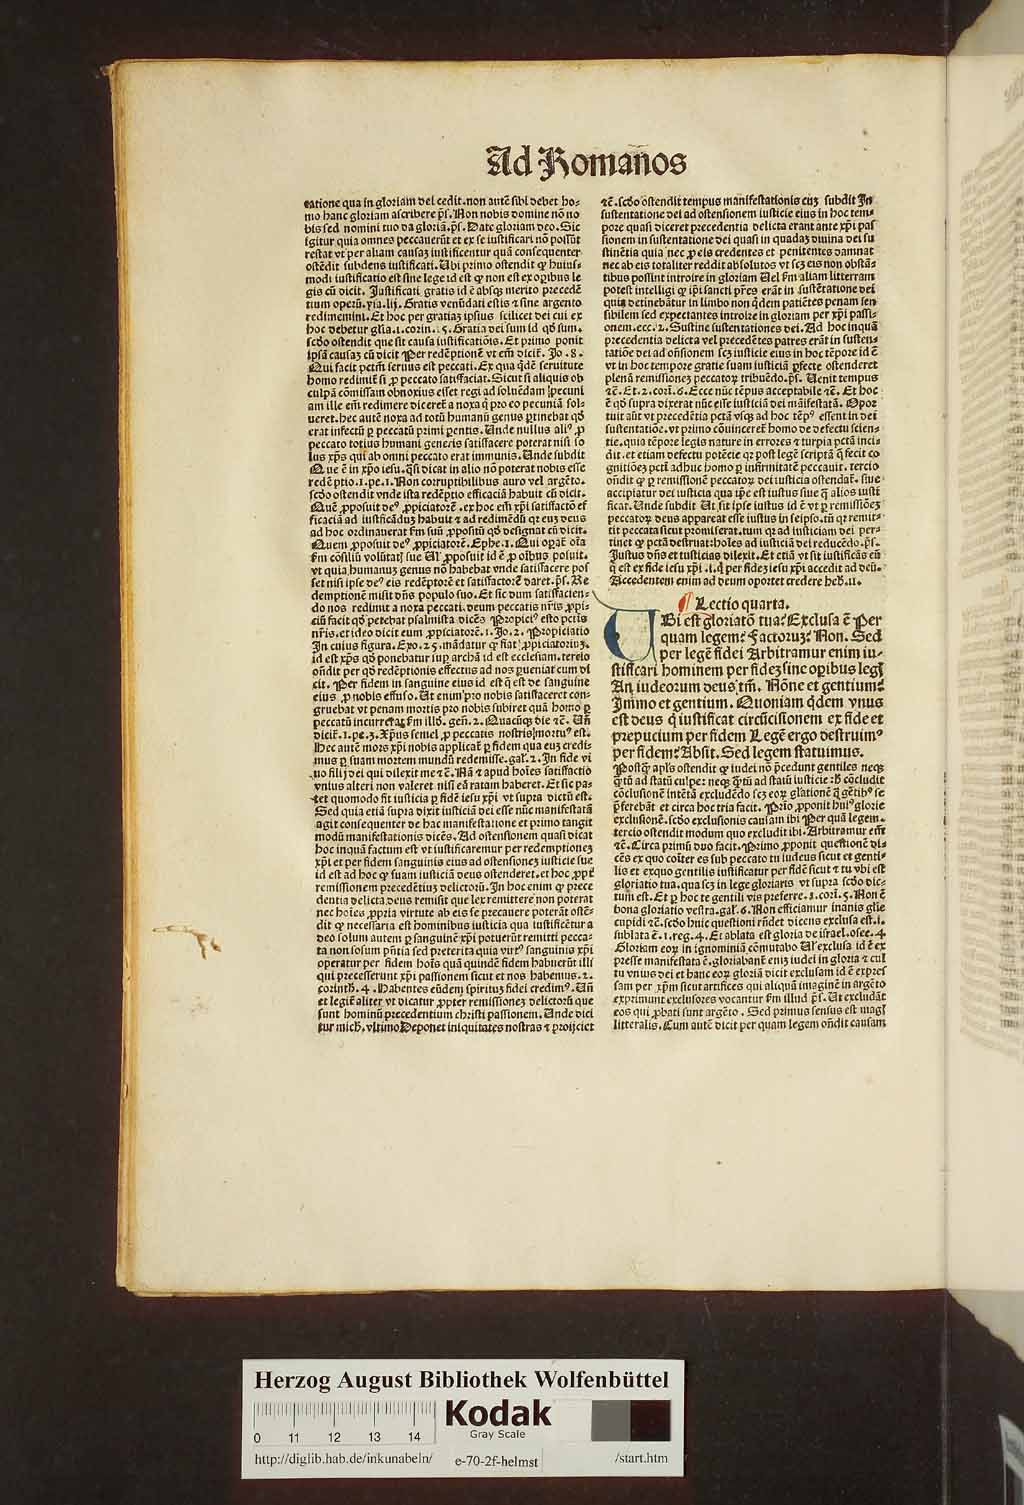 Ad Romanos
catione qua in gloriam dei cedit. non autē sibi debet ho-
mo hanc gloriam ascribere p̄s. Non nobis domine nō no
bis sed nomini tuo da gloriā. p̄s. Date gloriam deo. Sic
igitur quia omnes peccauerūt et ex se iustificari nō possūt
restat vt per aliam causaꝫ iustificentur quā consequenter
ostēdit subdens iustificati. Ubi primo ostendit ꝙ huius-
modi iustificatio est sine lege id est ꝙ non est ex operibus le
gis cū dicit. Justificati gratis id ē absqꝫ merito precedē
tium operū. ysa. lij. Gratis venūdati estis ⁊ sine argento
redimemini. Et hoc per gratiaꝫ ipsius scilicet dei cui ex
hoc debetur gl̄ia. 1. corin. 15. Gratia dei sum id qd̄ sum.
scd̄o ostendit que sit causa iustificatiōnis. Et primo ponit
ipsā causaꝫ cū dicit Per redēptionē vt em̄ dicit̄. Jo. 8.
Qui facit pctm̄ seruus est peccati. Ex qua qdē seruitute
homo redimit̄ si ꝓ peccato satisfaciat. Sicut si aliquis ob
culpā cōmissam obnoxius esset regi ad soluēdam pecuni
am ille em̄ redimere diceret̄ a noxa q̇ pro eo pecuniā sol-
ueret. hec autē noxa ad totū humanū genus ꝑtinebat qd̄
erat infectū ꝑ peccatū primi ꝑentis. Unde nullus aliꝰ ꝓ
peccato totius humani generis satisfacere poterat nisi so
lus xp̄s qui ab omni peccato erat immunis. Unde subdit
Que ē in xp̄o iesu. q̄si dicat in alio nō poterat nobis esse
redēptio. 1. pe. 1. Non corruptibilibus auro vel argēto.
scd̄o ostendit vnde ista redēptio efficaciā habuit cū dicit.
Quē ꝓposuit deꝰ ꝓpiciatorē. ex hoc em̄ xp̄i satisfactō ef
ficaciā ad iustificādum habuit ⁊ ad redimēdū qꝛ eum deus
ad hoc ordinauerat s̄m suū ꝓpositū qd̄ designat cū dicit.
Quem ꝓposuit deꝰ ꝓpiciatorē. Ephe. 1. Qui operat̄ oīa
s̄m cōsiliū volūtatꝭ sue Uel ꝓposuit id ē ꝓ oībus posuit.
vt quia humanuꝫ genus nō habebat vnde satisfacere pos
set nisi ipse deꝰ eis redēptorē et satisfactorē daret. p̄s. Re
demptionē misit dn̄s populo suo. Et sic dum satisfacien-
do nos redimit a noxa peccati. deum peccatis nr̄is ꝓpi-
ciū facit qd̄ petebat psalmista dicēs Propiciꝰ esto pctis
nr̄is. et ideo dicit eum ꝓpiciatorē. 1. Jo. 2. Propiciatio
In cuius figura. Exo. 25. mādatur ꝙ fiat ꝓpiciatoriuꝫ.
id est xp̄s qd̄ ponebatur sup archā id est ecclesiam. tercio
on̄dit per qd̄ redēptionis effectus ad nos ꝑueniat cum di
cit. Per fidem in sanguine eius id est q̄ est de sanguine
eius ꝓ nobis effuso. Ut enim pro nobis satisfaceret con-
gruebat vt penam mortis pro nobis subiret quā homo ꝑ
peccatū incurrerat s̄m illd̄. gen̄. 2. Quacūqꝫ die ⁊c. Un̄
dicit̄. 1. pe. 3. Xp̄us semel ꝓ peccatis nostris mortuꝰ est.
Hec autē mors xp̄i nobis applicat̄ ꝑ fidem qua euꝫ credi-
mus ꝑ suam mortem mundū redemisse. gal̄. 2. In fide vi
uo filij dei qui dilexit me ⁊c. Nā ⁊ apud hoīes satisfactio
vnius alteri non valeret nisi eā ratam haberet. Et sic pa-
tet quomodo fit iusticia ꝑ fidē iesu xp̄i vt supra dictū est.
Sed quia etiā supra dixit iusticiā dei esse nūc manifestatā
agit consequenter de hac manifestatione et primo tangit
modū manifestationis dicēs. Ad ostensionem quasi dicat
hoc inquā factum est vt iustificaremur per redemptionē
xp̄i et per fidem sanguinis eius ad ostensioneꝫ iusticie sue
id est ad hoc ꝙ suam iusticiā deus ostenderet. et hoc ꝓpt̄
remissionem precedētius delictorū. In hoc enim ꝙ prece
dentia delicta deus remisit que lex remittere non poterat
nec hoīes ꝓpria virtute ab eis se precauere poterāt ostē-
dit ꝙ necessaria est hominibus iusticia qua iustificētur a
deo solum autem ꝑ sanguinē xp̄i potuerūt remitti pecca-
ta non solum pn̄tia sed preterita quia virtꝰ sanguinis xp̄i
operatur per fidem hoīs quā quidē fidem habuerūt illi
qui precesserunt xp̄i passionem sicut et nos habemus. 2.
corinth. 4. Habentes eūdem spiritū fidei credimꝰ. Un̄
et legit̄ aliter vt dicatur ꝓpter remissioneꝫ delictorū que
sunt hominū precedentium christi passionem. Unde dici
tur mich. vltimo Deponet iniquitates nostras ⁊ proijciet
⁊c. scd̄o ostendit tempus manifestationis cuꝫ subdit In
sustentatione dei ad ostensionem iusticie eius in hoc tem-
pore quasi diceret precedentia delicta erant ante xp̄i pas
sionem in sustentatione dei quasi in quadaꝫ diuina dei su
stinētia quia nec ꝓ eis credentes et penitentes damnat
nec ab eis totaliter reddit absolutos vt scꝫ eis non obstā-
tibus possint introire in gloriam Uel s̄m aliam litterram
potest intelligi ꝙ ip̄i sancti pr̄es erāt in sustētatione dei
quia detinebātur in limbo non qdem patiētes penam sen
sibilem sed expectantes introire in gloriam per xp̄i passi-
onem. ecc. 2. Sustine sustentationes dei. Ad hoc inquā
precedentia delicta vel precedētes patres erāt in susten-
tatiōe dei ad on̄sionem scꝫ iusticie eius in hoc tēpore id ē
vt in hoc tempore gratie suam iusticiā ꝑfecte ostenderet
plenā remissioneꝫ peccatoꝝ tribuēdo. p̄s. Uenit tempus
⁊c. Et. 2. corī. 6. Ecce nūc tēpus acceptabile ⁊c. Et hoc
ē qd̄ supra dixerat nūc esse iusticiā dei māifestatā. Opor
tuit aūt vt precedētia pctā vsqꝫ ad hoc tēpꝰ essent in dei
sustentatiōe. vt primo cōuinceret̄ homo de defectu scien-
tie. quia tēpore legis nature in errores ⁊ turpia pctā inci-
dit. et etiam defectu potētie qꝛ post legē scriptā q̄ fecit co
gnitiōeꝫ pctī adhuc homo ꝑ infirmitatē peccauit. tercio
on̄dit ꝙ ꝑ remissionē peccatoꝝ dei iusticia ostendat̄. siue
accipiatur dei iusticia qua ip̄e est iustus siue q̄ alios iusti
ficat. Unde subdit Ut sit ipse iustus id ē vt ꝑ remissiōeꝫ
peccatoꝝ deus appareat esse iustus in seipso. tū qꝛ remit-
tit peccata sicut promiserat. tum qꝛ ad iusticiam dei per-
tinet ꝙ pctā destruat: hoīes ad iusticiā dei reducēdo. p̄s.
Justus dn̄s et iusticias dilexit. Et etiā vt sit iustificās eū
q̄ est ex fide iesu xp̄i .i. q̄ per fideꝫ iesu xp̄i accedit ad deū.
Accedentem enim ad deum oportet credere heb̄. 11.
¶ Lectio quarta.
UBi est gloriatō tua? Exclusa ē Per
quam legem? Factoruꝫ? Non. Sed
per legē fidei Arbitramur enim iu-
stificari hominem per fideꝫ sine oꝑibus legꝭ
An iudeorum deus tm̄. Nōne et gentium?
Immo et gentium. Quoniam qdem vnus
est deus q̇ iustificat circūcisionem ex fide et
prepucium per fidem Legē ergo destruimꝰ
per fidem? Absit. Sed legem statuimus.
Postqꝫ apl̄s ostendit ꝙ iudei nō p̄cedunt gentiles neqꝫ
q̄tū ad statū culpe: neqꝫ q̄tū ad statū iusticie: hic cōcludit
cōclusionē intētā excludēdo scꝫ eoꝝ gl̄ationē q̄ gētibꝰ se
p̄ferebāt et circa hoc tria facit. Prio ꝓponit huiꝰ glorie
exclusionē. scd̄o exclusionis causam ibi Per quā legem.
tercio ostendit modum quo excludit̄ ibi. Arbitramur em̄
⁊c. Circa primū duo facit. Primo ꝓponit questionē di-
cēs ex quo coīter es sub peccato tu iudeus sicut et genti-
lis et ex quo gentilis iustificatur per fidē sicut ⁊ tu vbi est
gloriatio tua. qua scꝫ in lege gloriaris vt supra scd̄o dic-
tum est. Et ꝑ hoc te gentili vis preferre. 1. corī. 5. Non ē
bona gloriatio vestra. gal̄. 6. Non efficiamur inanis glīe
cupidi ⁊c. scd̄o huic questioni rn̄det dicens exclusa est .i.
sublata ē. 1. reg. 4. Et ablata est gloria de israel. osee. 4
Gloriam eoꝝ in ignominiā cōmutabo Uel exclusa id ē ex
presse manifestata ē. gloriabant̄ eniꝫ iudei in gloria ⁊ cul
tu vnius dei et hanc eoꝝ gloriā dicit exclusam id ē expres
sam per xp̄m sicut artifices qui aliquā imaginē in argēto
exprimunt exclusores vocantur s̄m illud p̄s. Ut excludāt
eos qui ꝓbati sunt argēto. Sed primus sensus est magꝭ
litteralis. Cum autē dicit per quam legem on̄dit causam
Herzog August Bibliothek Wolfenbüttel
0 11 12 13 14
Kodak
Gray Scale
http://diglib.hab.de/inkunabeln/ e-70-2f-helmst /start.htm